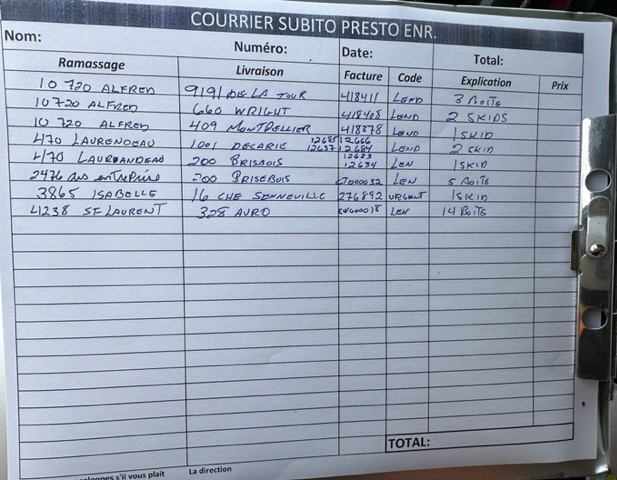 COURRIER SUBITO PRESTO ENR.
Nom: Numéro: Date: Total:
Ramassage Livraison Facture Code Explication Prix
10 720 ALFRED 9191 DE LA TOUR 418411 LEND 3 BOITE
10 720 ALFRED 660 WRIGHT 418408 LEND 2 SKIDS
10 720 ALFRED 409 MONTPELLIER 418378 LEND 1 SKID
470 LAURENDEAU 1001 DECARIE 12685 12666 12637 12684 LEND 2 SKID
470 LAURANDEAU 200 BRISBOIS 12683 12634 LEN 1 SKID
2476 entreprise 200 BRISEBOIS LEN 5 BOITE
3865 ISABELLE 16 CHE SENNEVILLE 276892 URGENT 1 SKID
4238 ST LAURENT 325 AURO LEN 14 BOITE
TOTAL:
s'il vous plait La direction